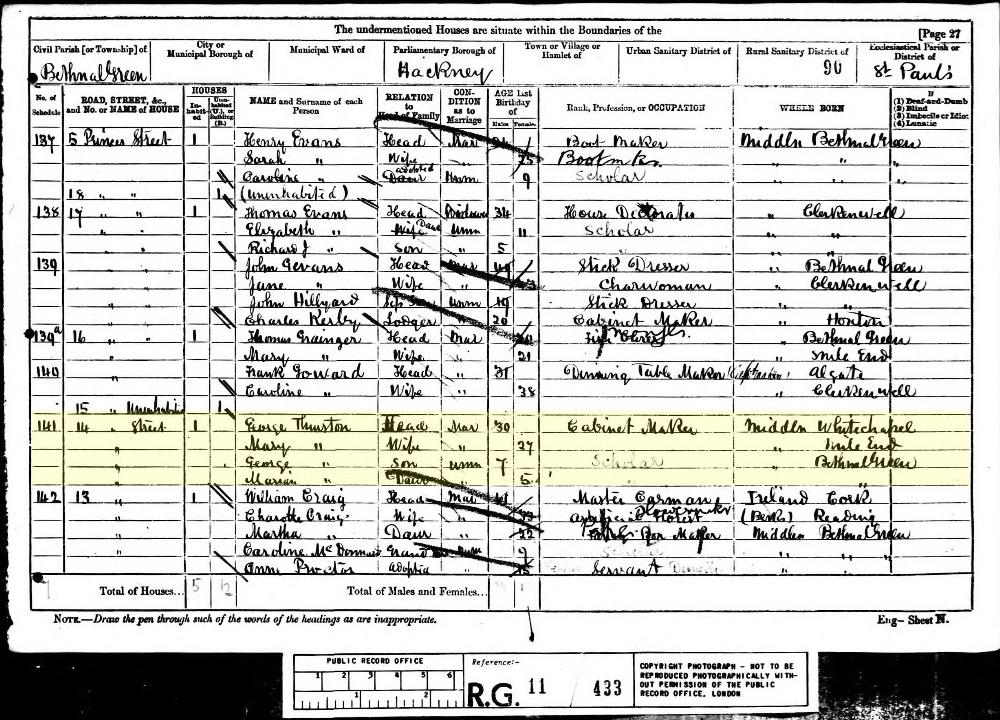 The undermentioned Houses are situate within the Boundaries of the
[Page 27
Civil Parish [or Township] of
City or Municipal Borough of
Municipal Ward of
Parliamentary Borough of
Town or Village or Hamlet of
Urban Sanitary District of
Rural Sanitary District of
Ecclesiastical Parish or District of
Bethnal Green Hackney 90 St Paul's
No. of Schedule
ROAD, STREET, &c., and No. or NAME of HOUSE
HOUSES
Inhabited
Uninhabited (U.), or Building (B.)
NAME and Surname of each Person
RELATION to Head of Family
CONDITION as to Marriage
AGE Last Birthday of
Males Females
Rank, Profession, or OCCUPATION
WHERE BORN
If
(1) Deaf-and-Dumb
(2) Blind
(3) Imbecile or Idiot
(4) Lunatic
137 5 Princes Street 1 Henry Evans Head Mar Boot Maker Middlx Bethnal Green
Sarah " Wife " Bootmkr " "
Caroline " adopted Daur Unm 9 Scholar " "
18 " " 1 (Uninhabited)
138 17 " " 1 Thomas Evans Head Widower 34 House Decorator " Clerkenwell
" " Elizabeth " Wife Daur Unm 11 Scholar " "
" Richard J " Son 5 " "
139 " John Gevans Head Mar Stick Dresser " Bethnal Green
" Jane " Wife " Charwoman " Clerkenwell
" John Hillyard Unm 19 Stick Dresser " "
" Charles Kerby Lodger " 20 Cabinet Maker " Hoxton
139a 16 " 1 Thomas Grainger Head Mar " Bethnal Green
" Mary " Wife " 21 " Mile End
140 " Frank Goward Head " 31 Dinning Table Maker " Algate
" Caroline " Wife " 38 " Clerkenwell
15 " Uninhabited 1
141 14 " Street 1 George Thurston Head Mar 30 Cabinet Maker Middlx Whitechapel
" Mary " Wife " 27 " Mile End
" George " Son Unm 7 Scholar " Bethnal Green
" Marian " Daur 5 " " "
142 13 " 1 William Craig Head Mar Master Carman Ireland Cork
" Charotte Craig Wife " (Berks) Reading
" Martha " Daur " 22 Box Maker Middlx Bethnal Green
" Caroline Grand Unm 9 Scholar " "
" Ann Proctor Adopted " 15 Servant " "
Total of Houses... 5 2
Total of Males and Females...
NOTE.—Draw the pen through such of the words of the headings as are inappropriate.
Eng- Sheet N.
PUBLIC RECORD OFFICE
1 2 3 4 5 6
1 2
Reference:-
R.G. 11 433
COPYRIGHT PHOTOGRAPH - NOT TO BE
REPRODUCED PHOTOGRAPHICALLY WITH-
OUT PERMISSION OF THE PUBLIC
RECORD OFFICE, LONDON